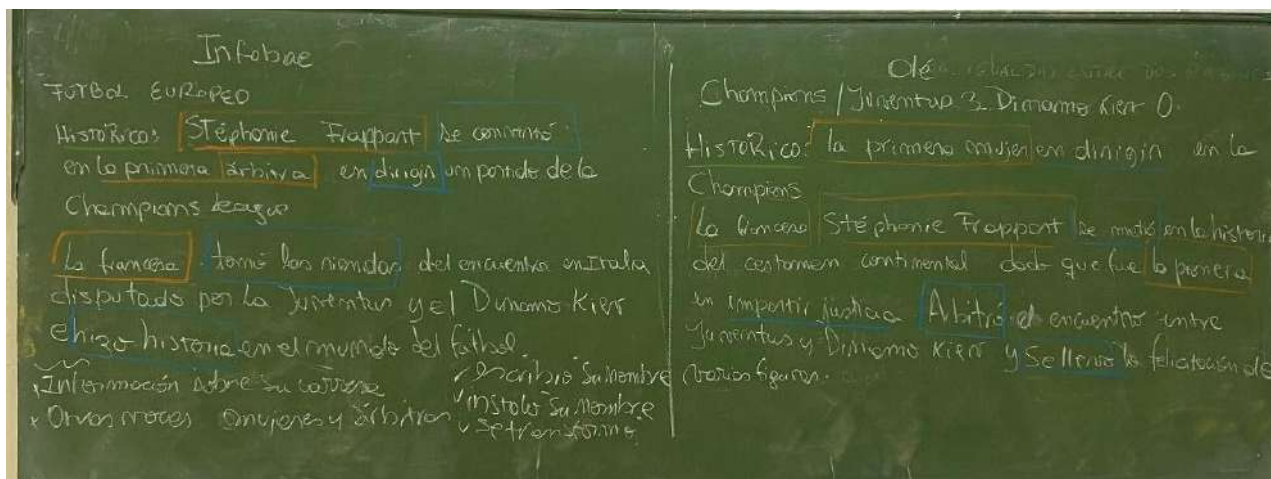 Infobae
FUTBOL EUROPEO
HISTÓRICO: Stéphanie Frappart se convirtió
en la primera árbitra en dirigir un partido de la
Champions League
La francesa tomó las riendas del encuentro en Italia
disputado por la Juventus y el Dinamo Kiev
e hizo historia en el mundo del fútbol.
Información sobre su carrera
x Otras voces mujeres y árbitras
✓ escribió su nombre
✓ instaló su nombre
✓ se transformó
Olé
Champions / Juventus 3 Dinamo Kiev 0.
HISTÓRICO: la primera mujer en dirigir en la
Champions
La francesa Stéphanie Frappart se metió en la historia
del certamen continental dado que fue la primera
en impartir justicia Arbitró el encuentro entre
Juventus y Dinamo Kiev y se llevó la felicitación de
varias figuras.